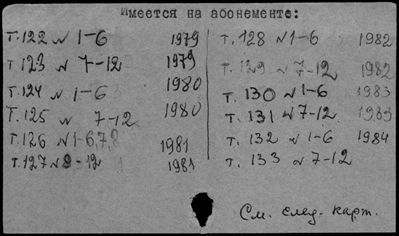 Имеется на абонементе:
т. 122 № 1-6 1979
т. 123 № 7-12 1979
т. 124 № 1-6 1980
т. 125 № 7-12 1980
т. 126 № 1-6,7,8 1981
т. 127 № 9-12 1981
т. 128 № 1-6 1982
т. 129 № 7-12 1982
т. 130 № 1-6 1983
т. 131 № 7-12 1983
т. 132 № 1-6 1984
т. 133 № 7-12
См. след. карт.